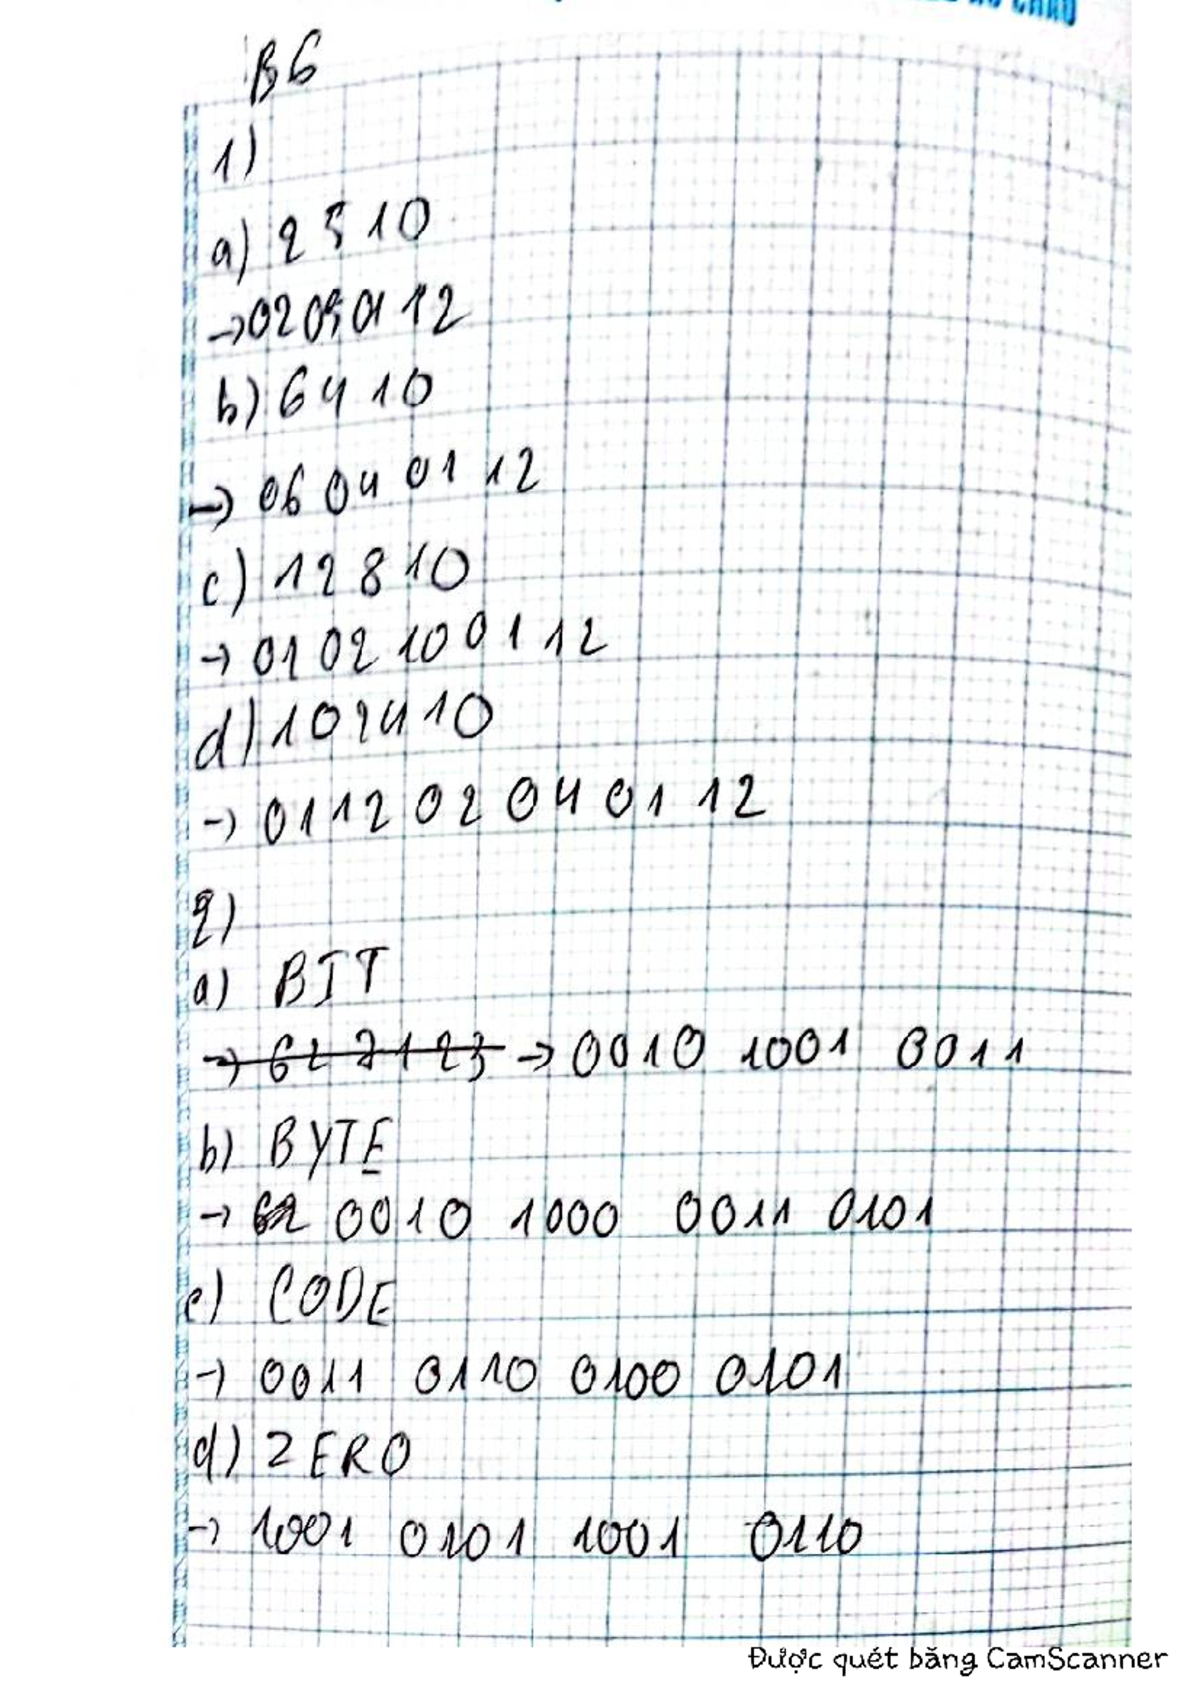 B6
1)
a) 2 5 10
→ 02 05 01 12
b) 64 10
→ 06 04 01 12
c) 12 8 10
→ 01 02 10 01 12
d) 1024 10
→ 01 12 02 04 01 12
2)
a) BIT
→ 0010 1001 0011
b) BYTE
→ 0010 1000 0011 0101
c) CODE
→ 0011 0110 0100 0101
d) ZERO
→ 1001 0101 1001 0110
Được quét bằng CamScanner